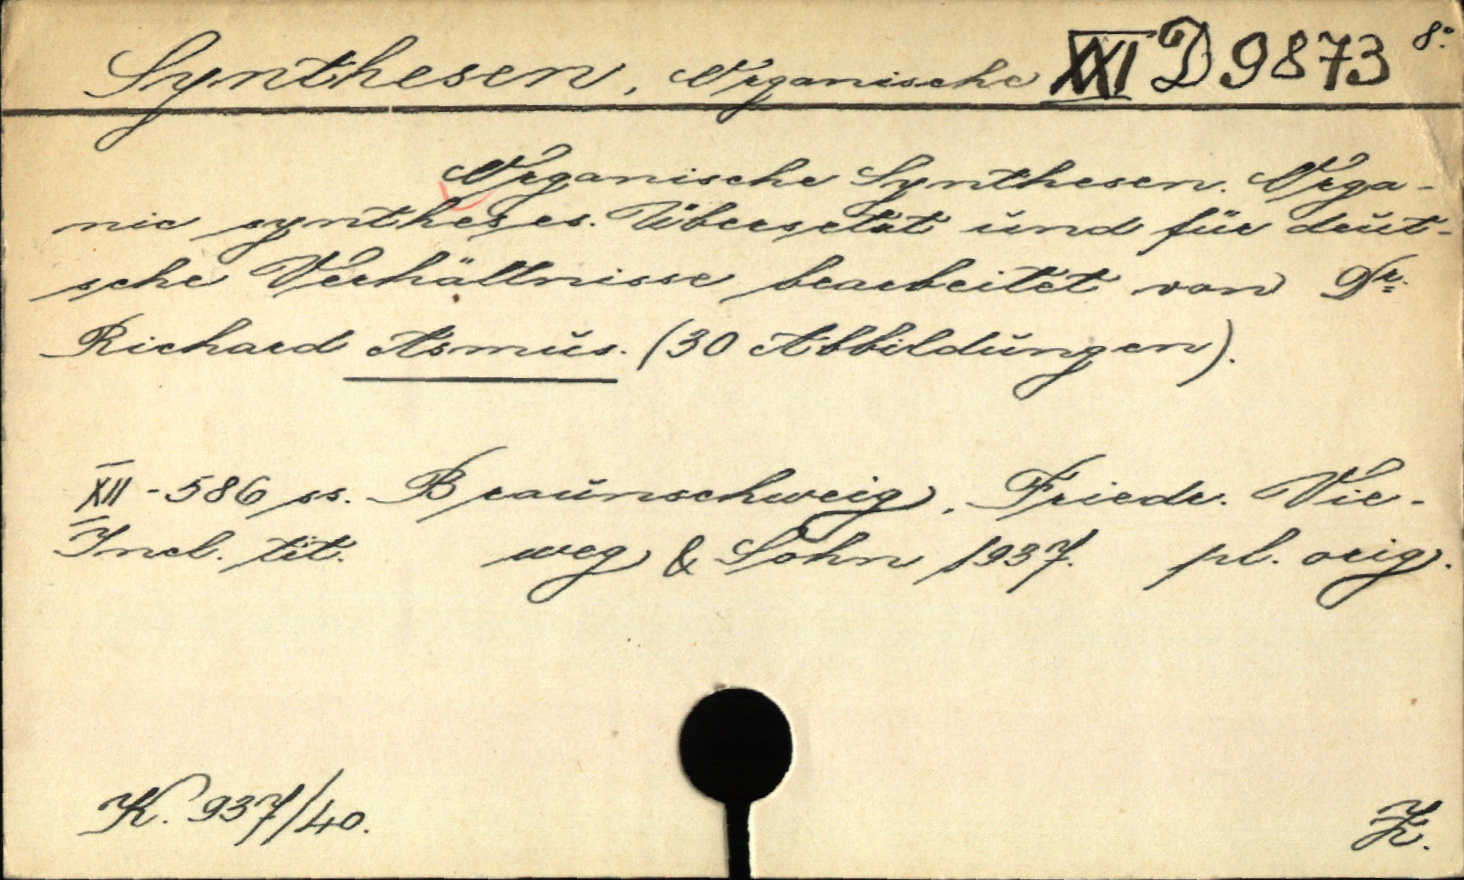 Synthesen, Organische XXI D 9873 8°.
Organische Synthesen. Orga-
nic syntheses. Übersetzt und für deut-
sche Verhältnisse bearbeitet von Dr.
Richard Asmus. (30 Abbildungen).
XII - 586 ss. Braunschweig, Friedr. Vie-
Incl. tit. weg & Sohn 1937. pl. orig.
K. 937/40.
K.